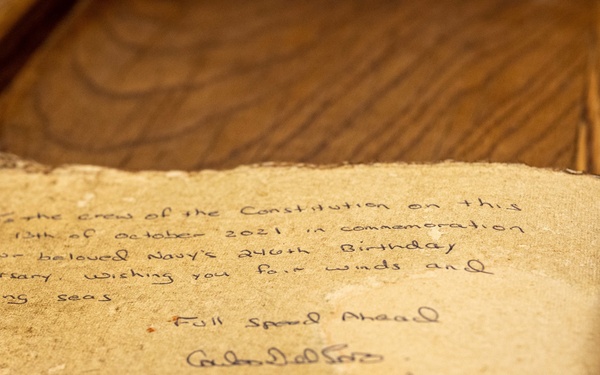 the crew of the Constitution on this
13th of October 2021 in commemoration
beloved Navy's 246th Birthday
rsary wishing you fair winds and
ng seas
Full Speed Ahead
Carlos Del Toro